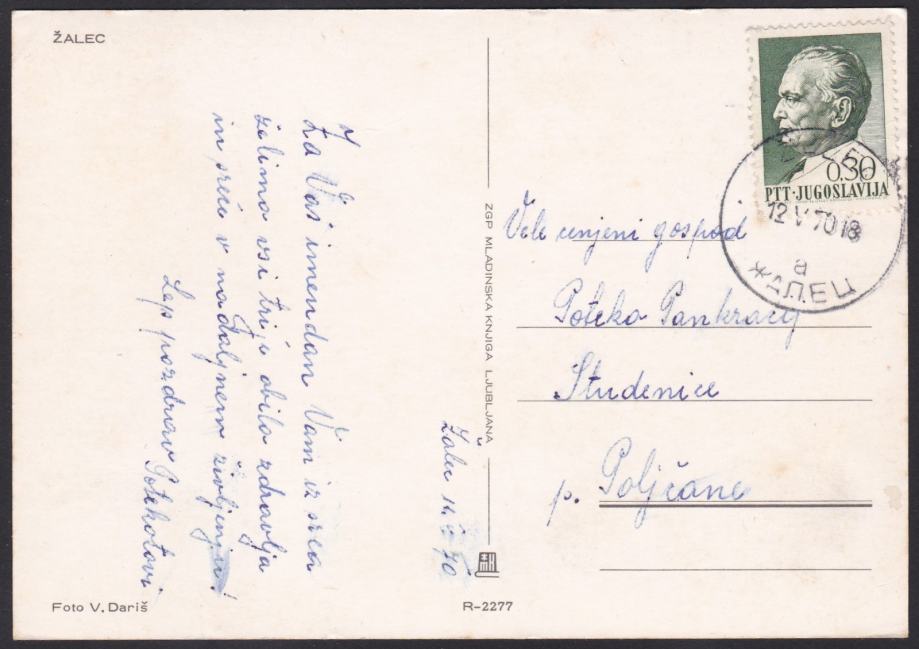 ŽALEC
Za Vaš imendan Vam iz srca
želimo vsi trije obilo zdravlja
in sreče v nadaljnem življenju!
Lep pozdrav Potekotovi
Žalec 11. V. 70
Foto V. Dariš
R-2277
ZGP MLADINSKA KNJIGA LJUBLJANA
0.30
PTT·JUGOSLAVIJA
12 V 70 18
a
ЖАЛЕЦ
Vele cenjeni gospod
Poteko Pankracij
Studenice
p. Poljčane